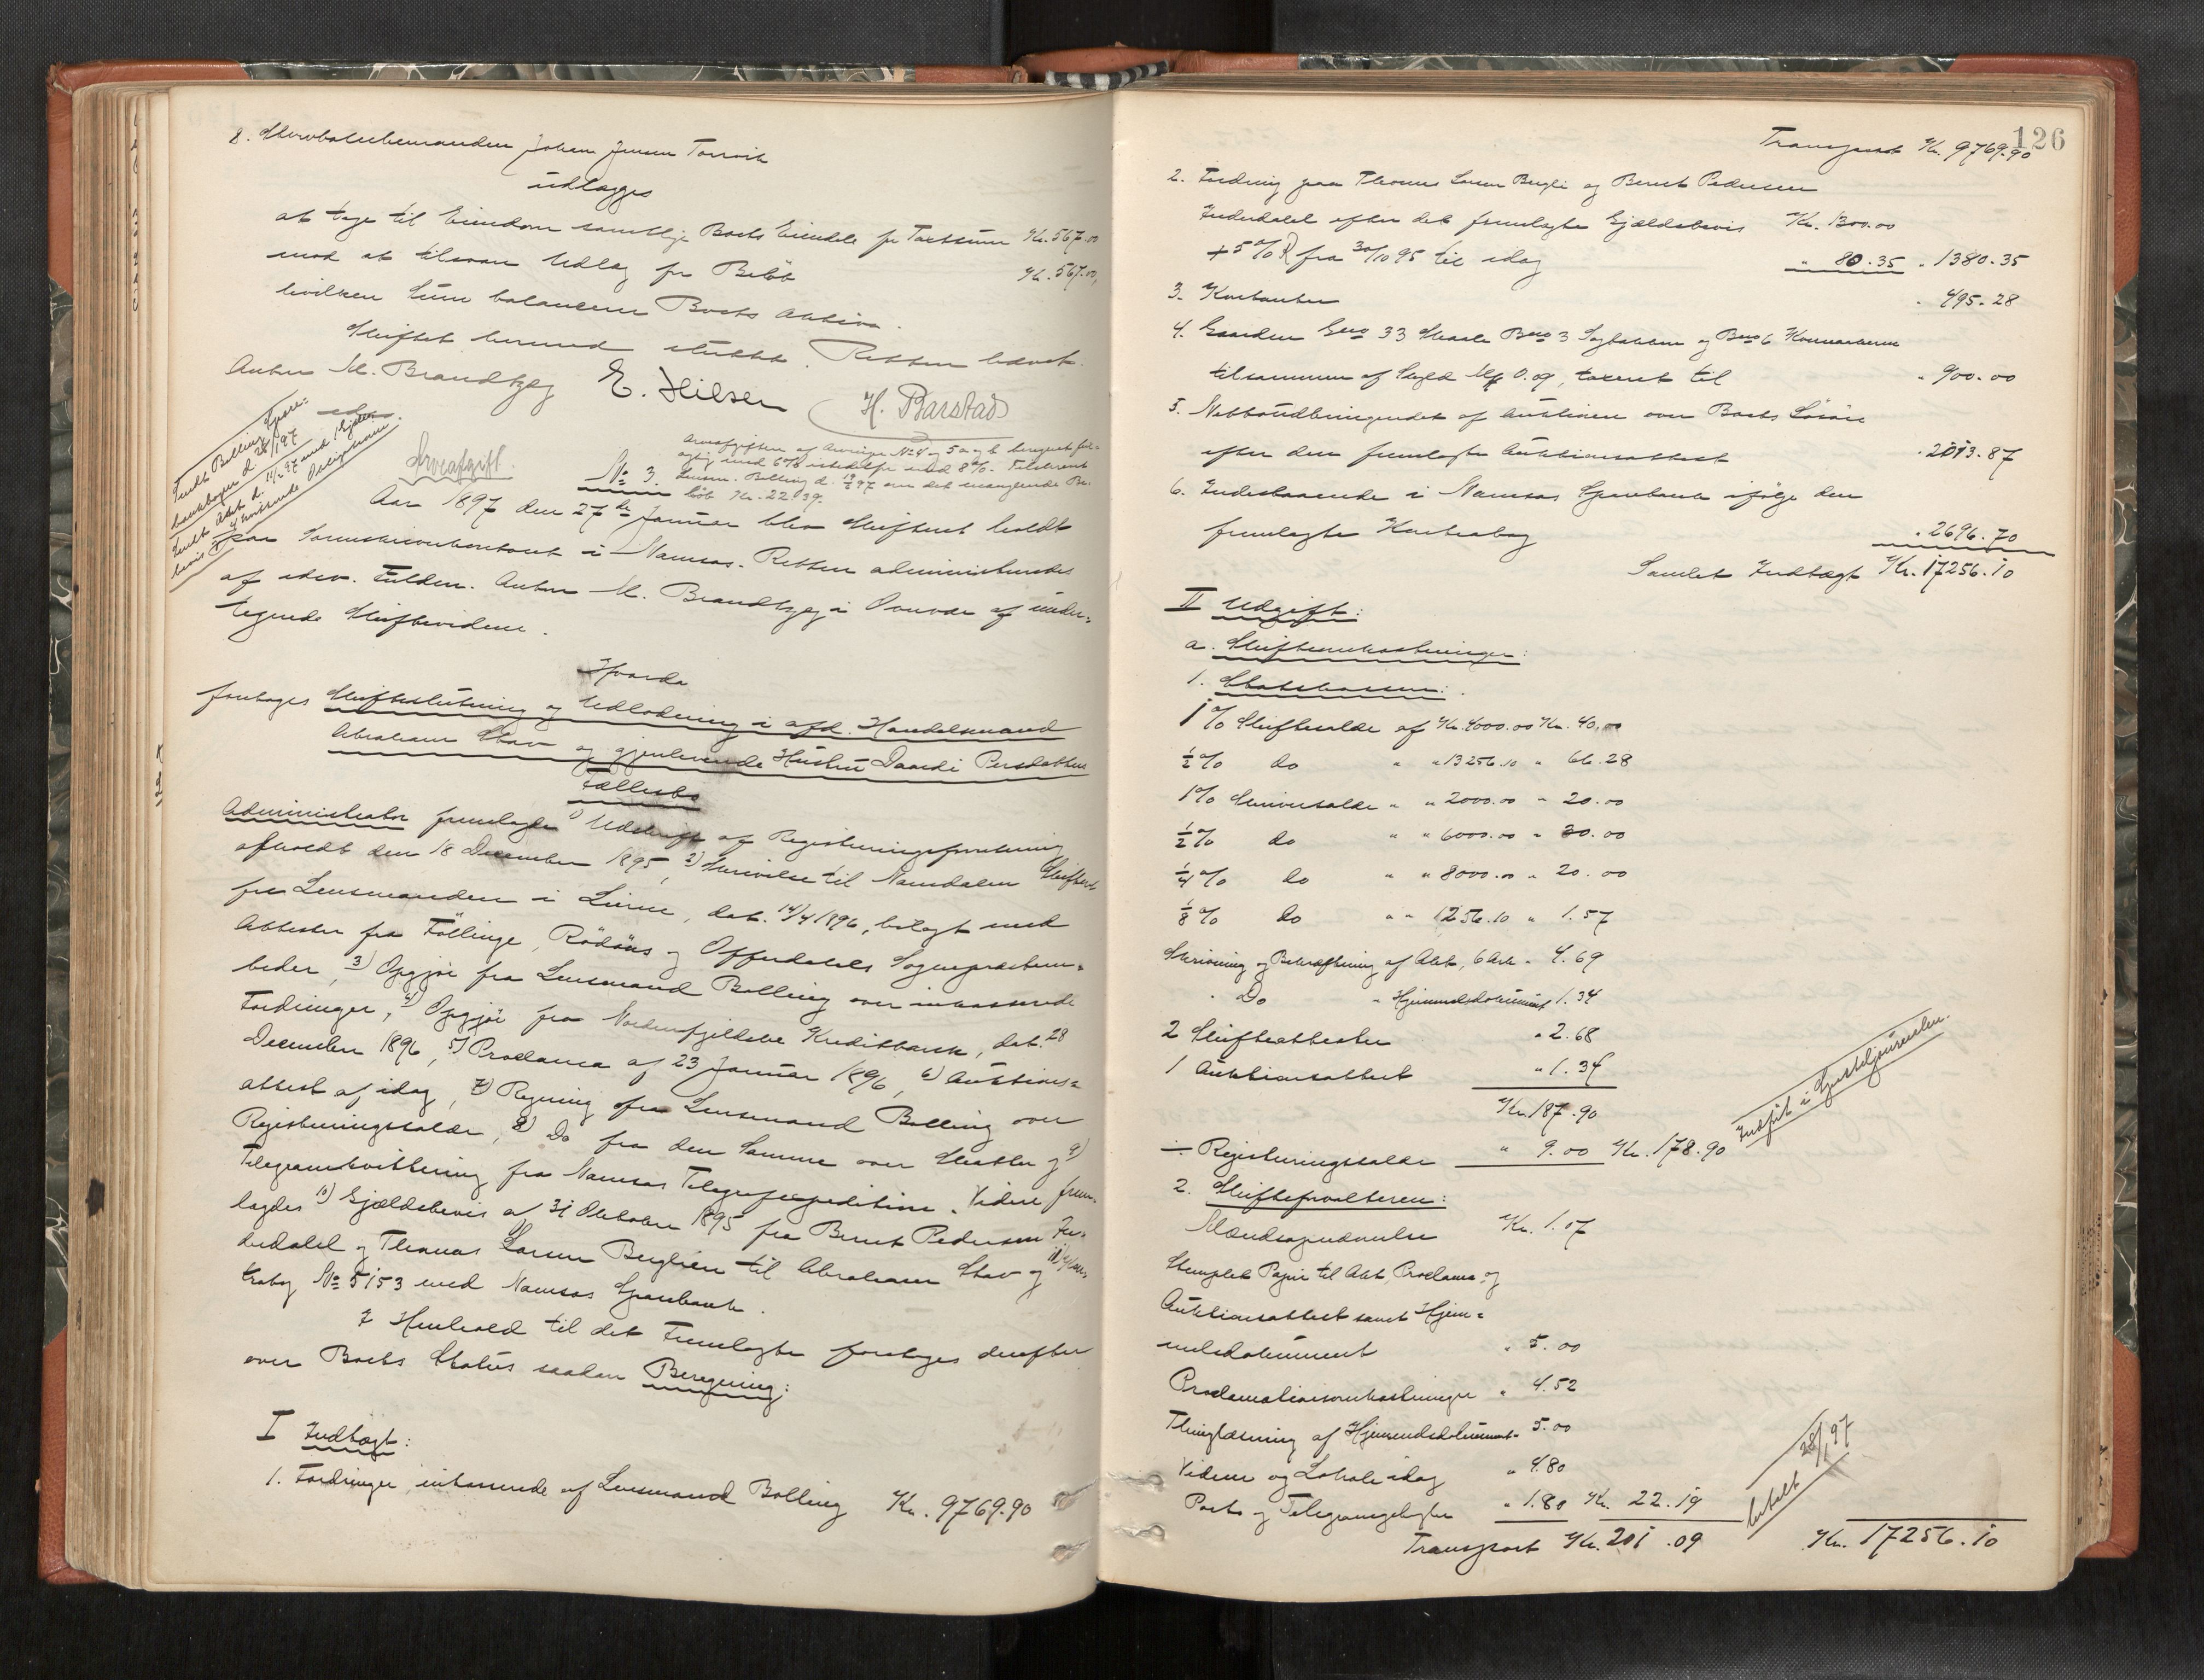 8. Skovbetjenten Johan Jensen Torsvik
udlægges
at tage til Eiendom samtlige Boets Eiendele for Taxtsum Kr. 567.00
mod at tilsvare Udlæg for Beløb Kr. 567.00,
hvilken Sum balancerer Boets Aktiva.
Skiftet hermed sluttet. Retten hævet.
Anton M. Brandtzæg E. Hilsen H. Barstad
edsv.
Indt Bolling Spare-
bankbøger d. 28/1 97
Indt. Akt d. 11/2 97 med 1 Gjælds-
bevis
Arveafgift.
Arveafgiften af Arvinge No 4 og 5 a og b beregnet feil-
agtig med 6% istedetfor med 8%. Tilskrevet
Lensm. Bolling d. 19/2 97 om det manglende Be-
løb Kr. 22.39.
No 3.
Aar 1897 den 27de Januar blev Skifteret holdt
paa Sorenskriverkontoret i Namsos. Retten administreredes
af edsv. Fuldm. Anton M. Brandtzæg i Overvær af under-
tegnede Skiftevidner.
Hvorda
foretoges Skifteslutning og Udlodning i afd. Handelsmand
Abraham Stav og gjenlevende Hustru Daardi Persdatters
Fællesbo
Administrator fremlagde 1) Udskrift af Registreringsforretning
afholdt den 18 December 1895, 2) Skrivelse til Namdalens Skifteret
fra Lensmanden i Lierne, dat. 14/4 1896, bilagt med
Attester fra Föllinge, Rödöns og Offerdals Sognepræstem-
beder, 3) Opgjør fra Lensmand Bolling over inkasserede
Fordringer, 4) Opgjør fra Nordenfjeldske Kreditbank, dat. 28
December 1896, 5) Proclama af 23 Januar 1896, 6) Auktions-
attest af idag, 7) Regning fra Lensmand Bolling over
Registreringssalær, 8) Do fra den Samme over Skatter og 9)
Telegramkvittering fra Namsos Telegrafexpedition. Videre frem-
lagdes 10) Gjældsbevis af 31 Oktober 1895 fra Bernt Pedersen In-
derdalel og Thomas Larsen Berglien til Abraham Stav og 11) Kon-
trabog No 5153 med Namsos Sparebank.
I Henhold til det Fremlagte foretoges derefter
over Boets Status saadan Beregning:
I Indtægt:
1. Fordringer inkasserede af Lensmand Bolling Kr. 9769.90
126
Transport Kr. 9769.90
2. Fordring paa Thomas Larsen Bergli og Bernt Pedersen
Inderdalel efter det fremlagte Gjældsbevis Kr. 1300.00
+ 5% R fra 30/10 95 til idag " 80.35 " 1380.35
3. Kontanter " 495.28
4. Gaarden Gno 33 Bno 3 og Bno 6
tilsammen af Skyld Mk 0.09, taxeret til " 900.00
5. Nettoudbringendet af Auktionen over Boets Løsøre
efter den fremlagte Auktionsattest " 2013.87
6. Indestaaende i Namsos Sparebank ifølge den
fremlagte Kontrabog " 2696.70
Samlet Indtægt Kr. 17256.10
II Udgift:
a. Skifteomkostninger:
1. Statskassen:
1% Skiftesalær af Kr. 4000.00 Kr. 40.00
½% do " " 13256.10 " 66.28
1% Skriversalær " " 2000.00 " 20.00
½% do " " 6000.00 " 30.00
¼% do " " 8000.00 " 20.00
⅛% do " " 1256.10 " 1.57
Skrivning og Bekræftning af Akt, 6 Ark " 4.69
" Do " Hjemmelsdokument 1.34
2 Skifteattester " 2.68
1 Auktionsattest " 1.34
Kr. 187.90
÷ Registreringssalær " 9.00 Kr. 178.90
Indført i Sporteljournalen.
2. Skifteforvalteren:
Mændsopnævnelse Kr. 1.07
Stemplet Papir til Akt, Proclama og
Auktionsattest samt Hjem-
melsdokument " 5.00
Proclamationsomkostninger " 4.52
Thinglæsning af Hjemmelsdokument " 5.00
Vidner og Lokale idag " 4.80
Porto og Telegramgebyr " 1.80 Kr. 22.19
betalt 28/1 97
Transport Kr. 201.09 Kr. 17256.10